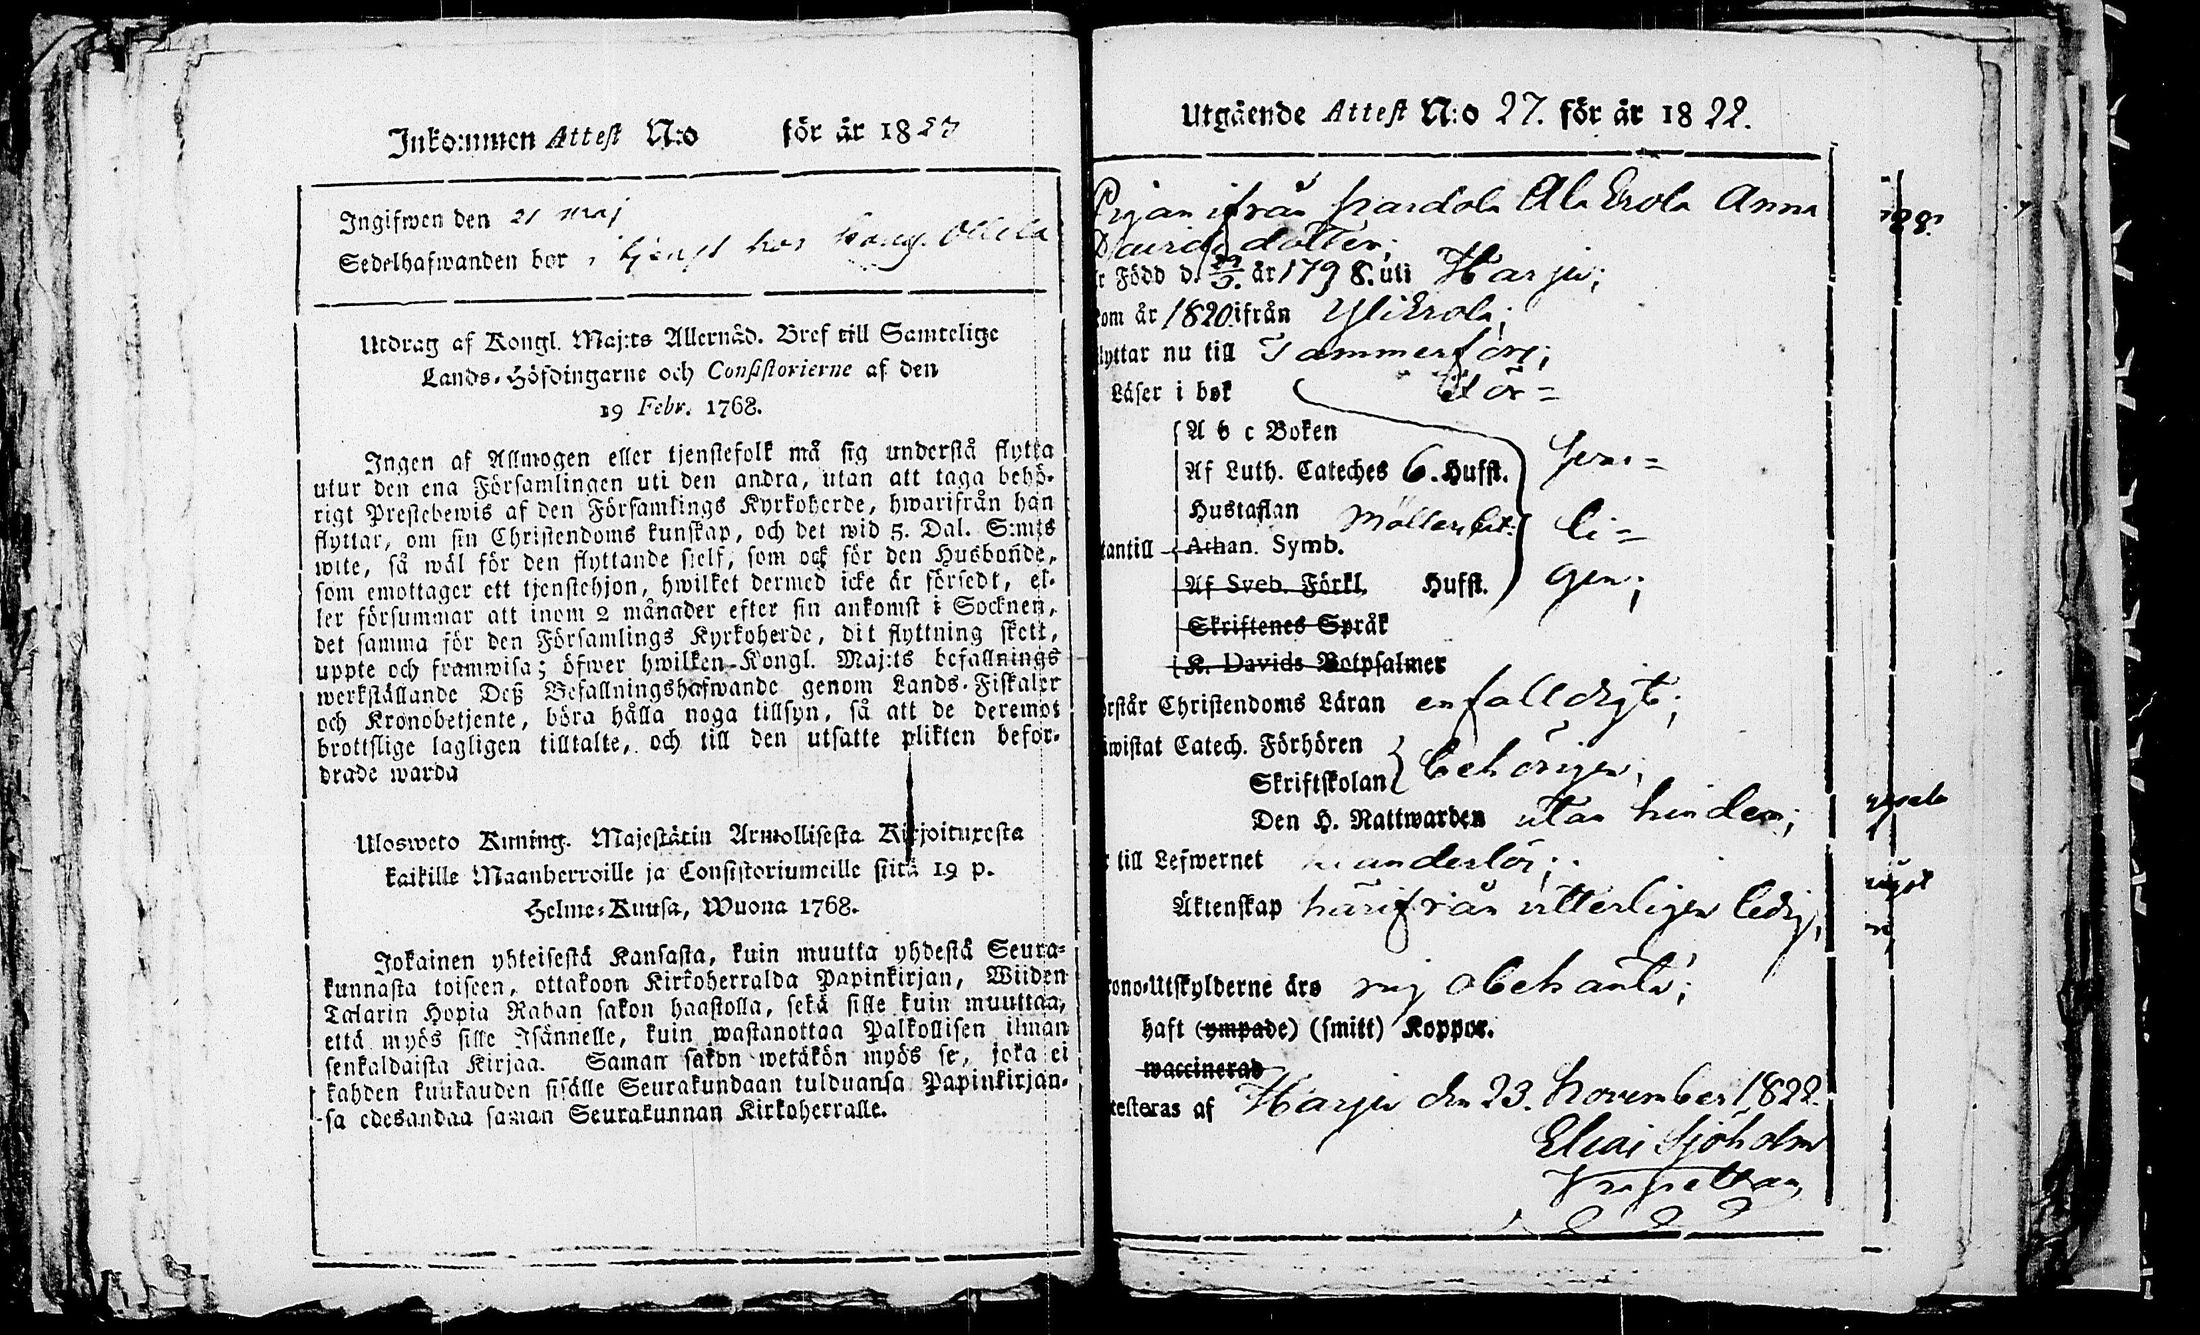 Inkommen Attest N:o för år 1823
Ingifwen den 21 maj
Sedelhafwanden bor i tjenst hos
Utdrag af Kongl. Maj:ts Allernåd. Bref till Samtelige
Lands-Höfdingarne och Consistorierne af den
19 Febr. 1768.
Ingen af Allmogen eller tjenstefolk må sig understå flytta
utur den ena Församlingen uti den andra, utan att taga behö-
rigt Prestebewis af den Församlings Kyrkoherde, hwarifrån han
flyttar, om sin Christendoms kunskap, och det wid 5. Dal. S:mts
wite, så wäl för den flyttande sielf, som ock för den Husbonde,
som emottager ett tjenstehjon, hwilket dermed icke är försedt, el-
ler försummar att inom 2 månader efter sin ankomst i Socknen,
det samma för den Församlings Kyrkoherde, dit flyttning skett,
uppte och framwisa; öfwer hwilken Kongl. Maj:ts befallnings
werkställande Deß Befallningshafwande genom Lands-Fiskaler
och Kronobetjente, böra hålla noga tillsyn, så att de deremot
brottslige lagligen tilltalte, och till den utsatte plikten befor-
drade warda
Ulosweto Kuning. Majestätin Armollisesta Kirjoituxesta
kaikille Maanherroille ja Consistoriumeille siitä 19 p.
Helme-Kuusa, Wuona 1768.
Jokainen yhteisestä Kansasta, kuin muutta yhdestä Seura-
kunnasta toiseen, ottakoon Kirkoherralda Papinkirjan, Wiiden
Talarin Hopia Rahan sakon haastolla, sekä sille kuin muuttaa,
että myös sille Isännelle, kuin wastanottaa Palkollisen ilman
senkaldaista Kirjaa. Saman sakon wetäkön myös se, joka ei
kahden kuukauden sisälle Seurakundaan tulduansa Papinkirjan-
sa edesandaa saman Seurakunnan Kirkoherralle.
Utgående Attest N:o 27. för år 1822.
Pigan ifrån Ala Erola Anna
Davids dotter;
r Född d. år 1798. uti Harju;
kom år 1820 ifrån Yli Erola;
lyttar nu till Tammerfors;
Läser i bok för=
A b c Boken
Af Luth. Cateches 6. Hufst. svar=
Hustaflan
li=
tantill Athan. Symb.
Af Sveb. Förkl. Hufst. gen;
Skriftenes Språk
K. Davids Botpsalmer
örstår Christendoms Läran enfalldigt;
iwistat Catech. Förhören
Skriftskolan behörigen;
Den H. Nattwarden utan hinder;
r till Lefwernet
Äktenskap härifrån vitterligen ledig,
rono-Utskylderne äro mig obekanta;
haft (ympade) (smitt) Koppor.
waccinerad
testeras af Harju den 23. November 1822.
Elias Sjöholm